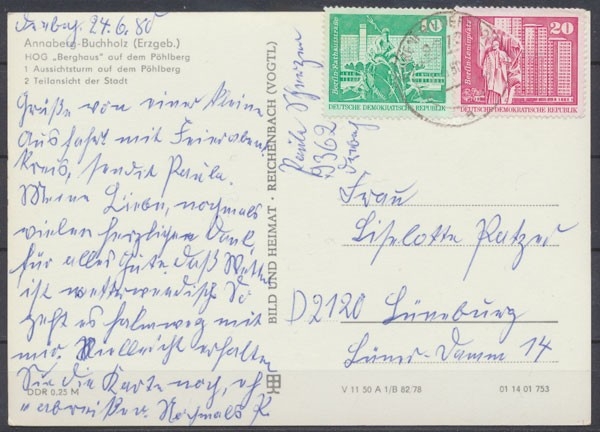 Drebach, 24.6.80
Annaberg-Buchholz (Erzgeb.)
HOG „Berghaus" auf dem Pöhlberg
1 Aussichtsturm auf dem Pöhlberg
2 Teilansicht der Stadt
Grüße von einer kleinen
Ausfahrt mit Feierabend
kreis, sendet Paula.
Meine Lieben, nochmals
vielen herzlichen Dank
für alles Gute. Das Wetter
ist wetterwendisch. So
geht es halwegs mit
mir. Vielleicht erhalten
Sie die Karte noch, eh
abreißen. Nochmals P.
DDR 0,25 M
BILD UND HEIMAT · REICHENBACH (VOGTL)
Paula
9362
Drebach
10
Berlin-Rathausstraße
DEUTSCHE DEMOKRATISCHE REPUBLIK
20
Berlin-Leninplatz
DEUTSCHE DEMOKRATISCHE REPUBLIK
Frau
Liselotte Patzer
D2120 Lüneburg
Lüner-Damm 14
V 11 50 A 1/B 82/78
01 14 01 753